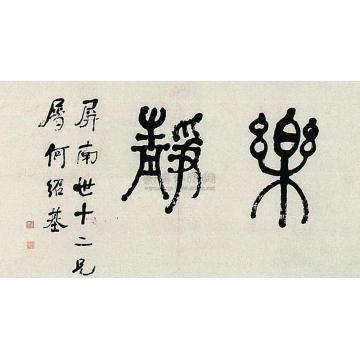 樂靜
屏南世十二兄
屬何紹基